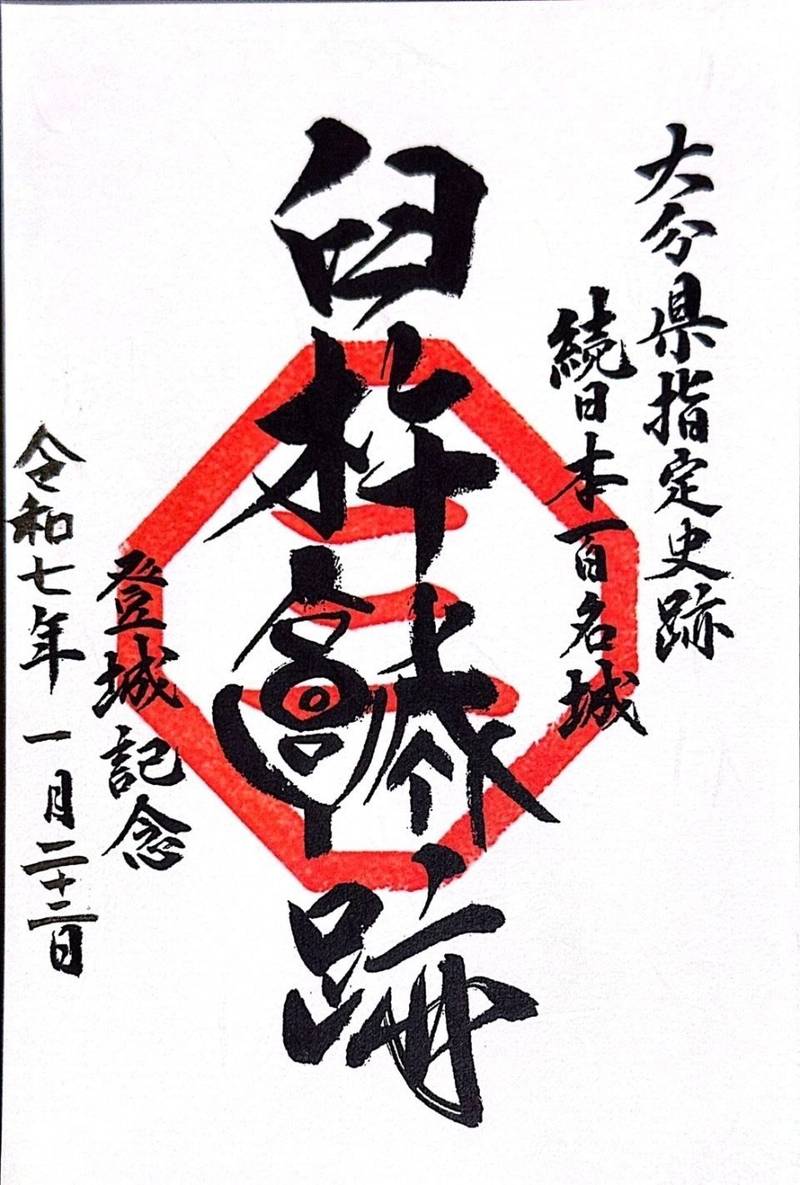 大分県指定史跡
続日本一百名城
臼杵城跡
登城記念
令和七年一月二十二日